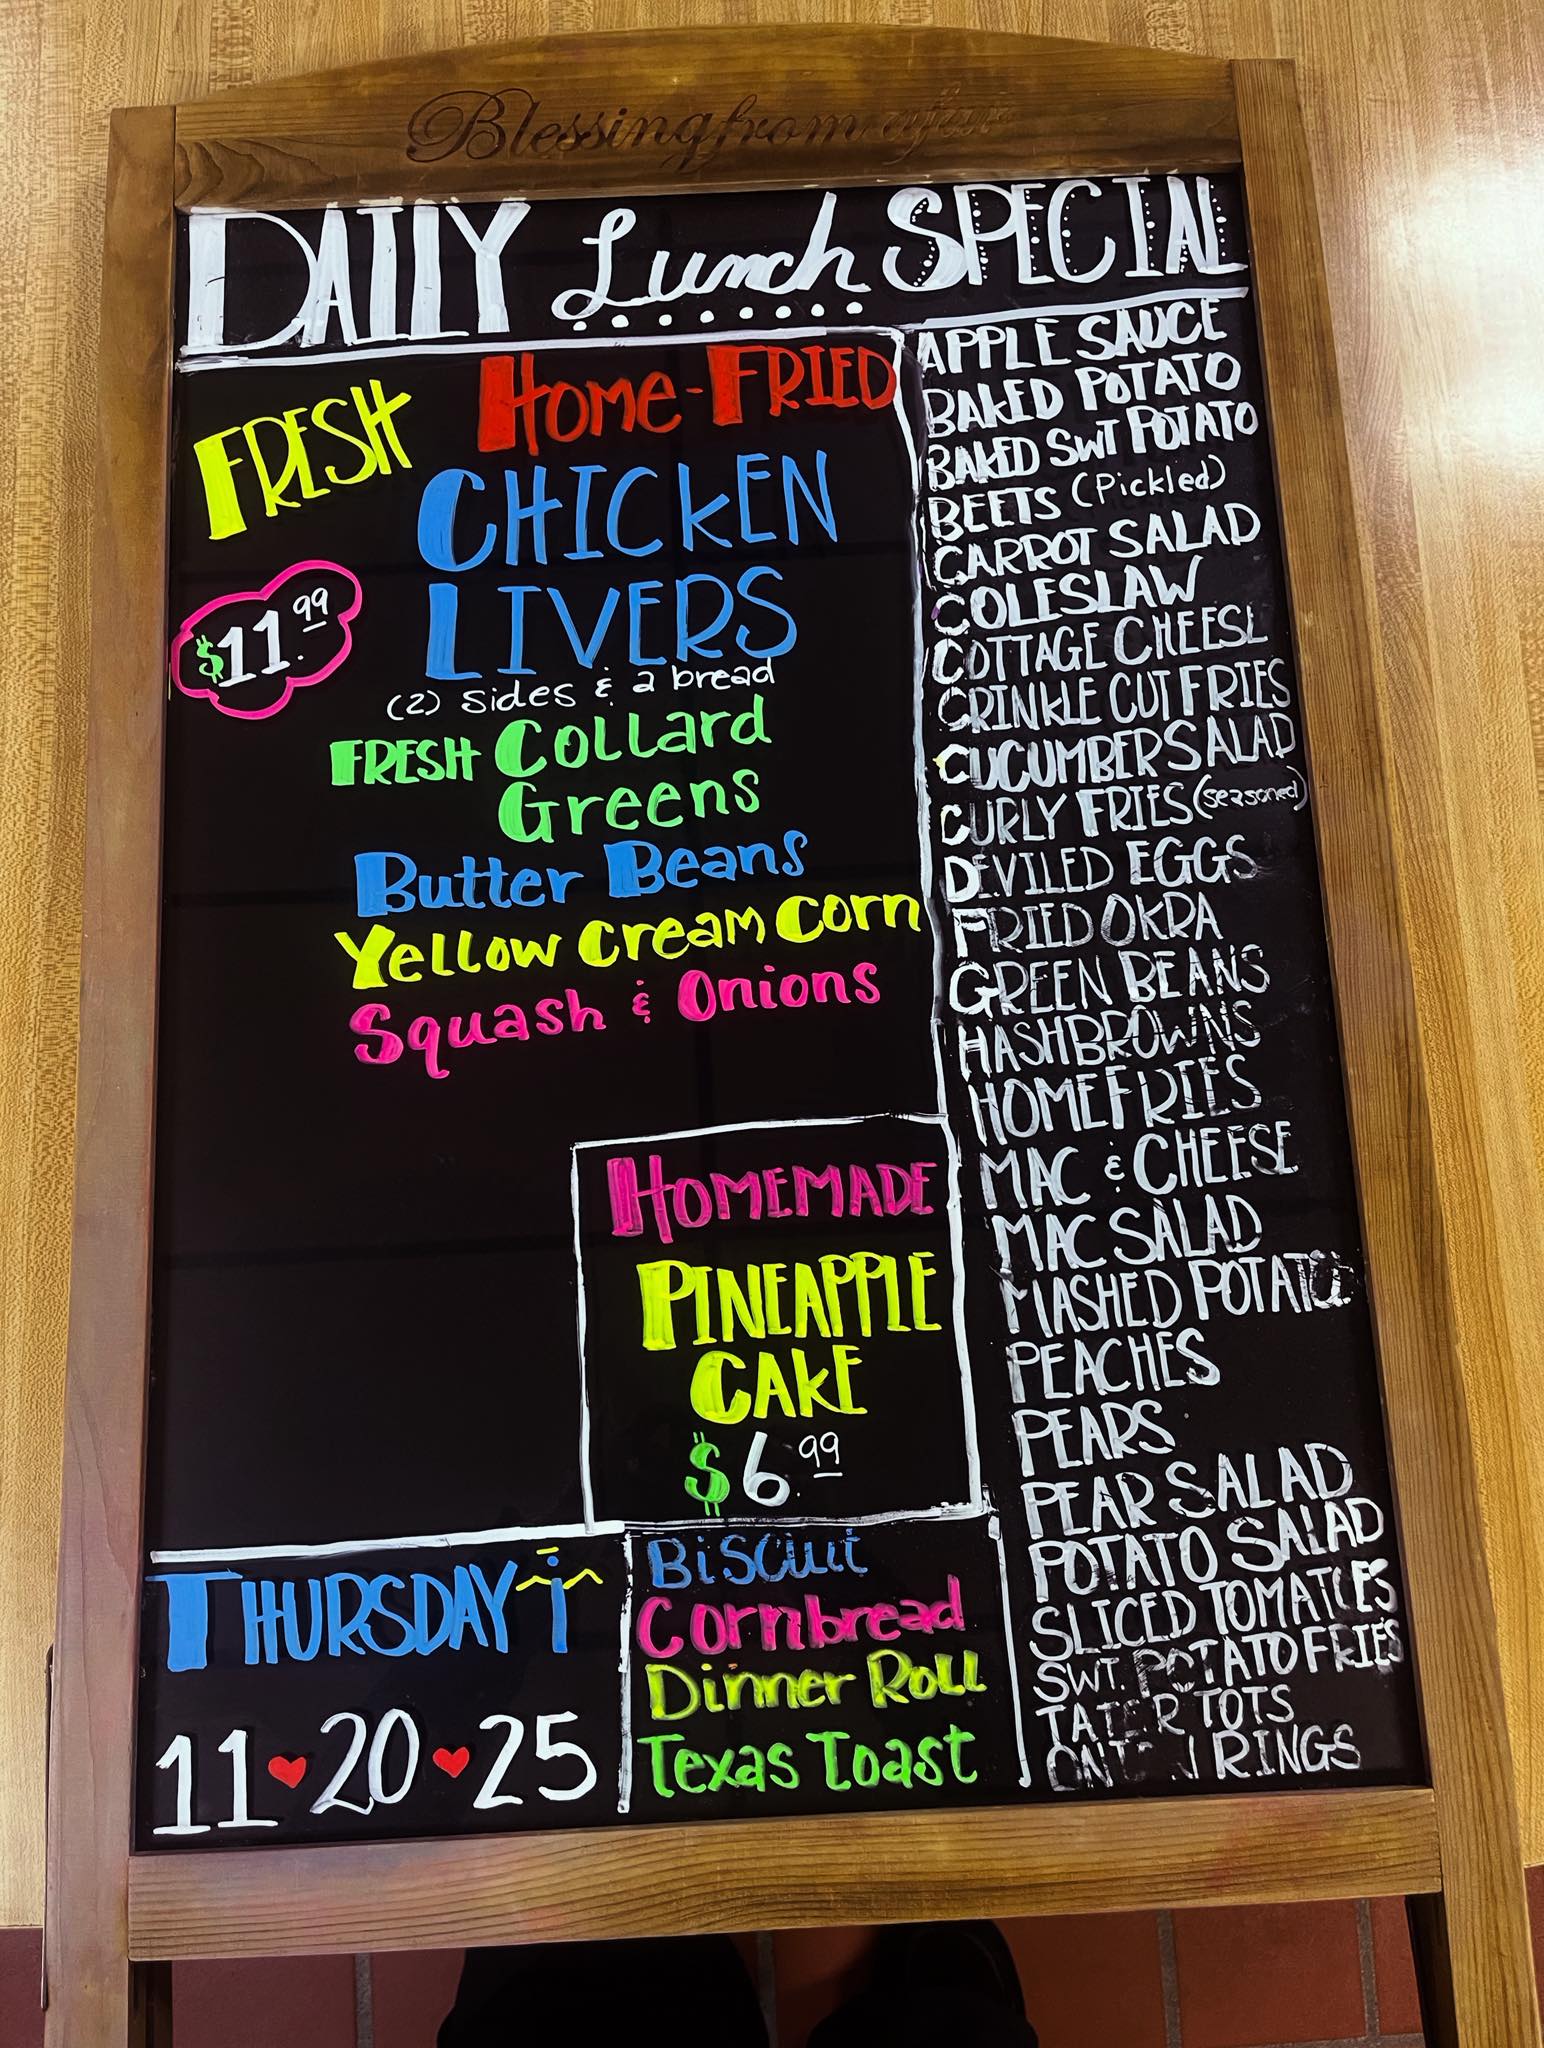 Blessing from afar
DAILY Lunch SPECIAL
FRESH
HOME-FRIED
CHICKEN
LIVERS
$11.99
(2) sides & a bread
FRESH Collard
Greens
Butter Beans
Yellow Cream Corn
Squash & Onions
HOMEMADE
PINEAPPLE
CAKE
$6.99
THURSDAY
11 20 25
BISCUIT
Cornbread
Dinner Roll
Texas Toast
APPLE SAUCE
BAKED POTATO
BAKED SWT POTATO
BEETS (Pickled)
CARROT SALAD
COLESLAW
COTTAGE CHEESE
CRINKLE CUT FRIES
CUCUMBER SALAD
CURLY FRIES (seasoned)
DEVILED EGGS
FRIED OKRA
GREEN BEANS
HASHBROWNS
HOMEFRIES
MAC & CHEESE
MAC SALAD
MASHED POTATO
PEACHES
PEARS
PEAR SALAD
POTATO SALAD
SLICED TOMATOES
SWT. POTATO FRIES
TATER TOTS
ONION RINGS